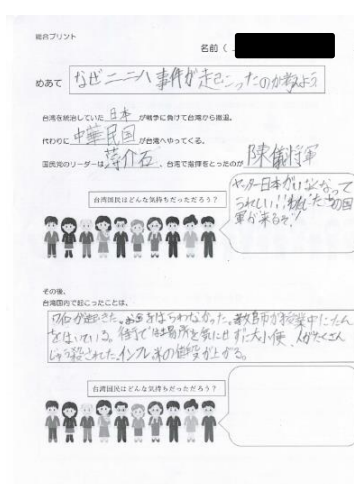 総合プリント
名前(
めあて なぜ二二八事件が起こったのか考えよう
台湾を統治していた 日本 が戦争に負けて台湾から撤退。
代わりに 中華民国 が台湾へやってくる。
国民党のリーダーは 蒋介石 、台湾で指揮をとったのが 陳儀将軍
台湾国民はどんな気持ちだっただろう?
ヤッター日本がいなくなって
うれしい!!私たちの国
軍が来るぞ!
その後、
台湾国内で起こったことは、
ワイロが起きた。お金をはらわなかった。教師が授業中にたん
をはいている。待〇で場所を気にせずに大小便、人がたくさん
じゅう殺された。インフレ米の値段が上がる。
台湾国民はどんな気持ちだっただろう?